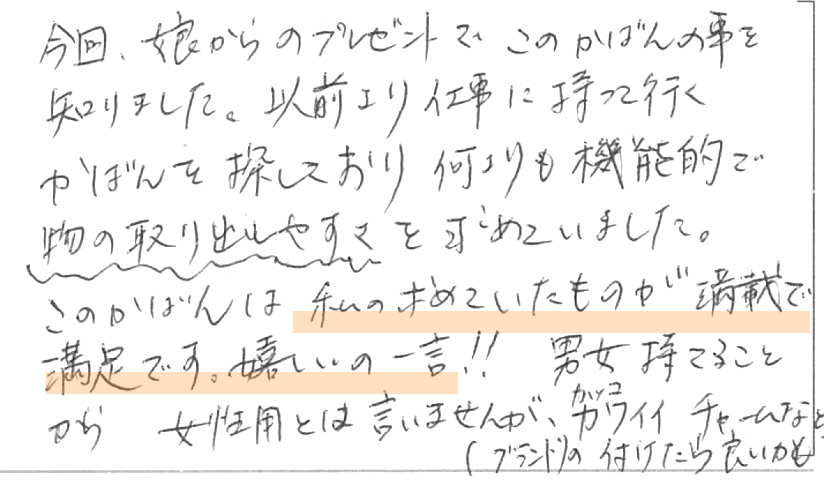 今回、娘からのプレゼントで このかばんの事を
知りました。以前より仕事に持って行く
かばんを探しており 何よりも機能的で
物の取り出しやすさを求めていました。
このかばんは 私の求めていたものが 満載で
満足です。嬉しいの一言!! 男女持てること
から 女性用とは言いませんが、カッコカワイイ チャームなど
(ブランドの 付けたら良いかも